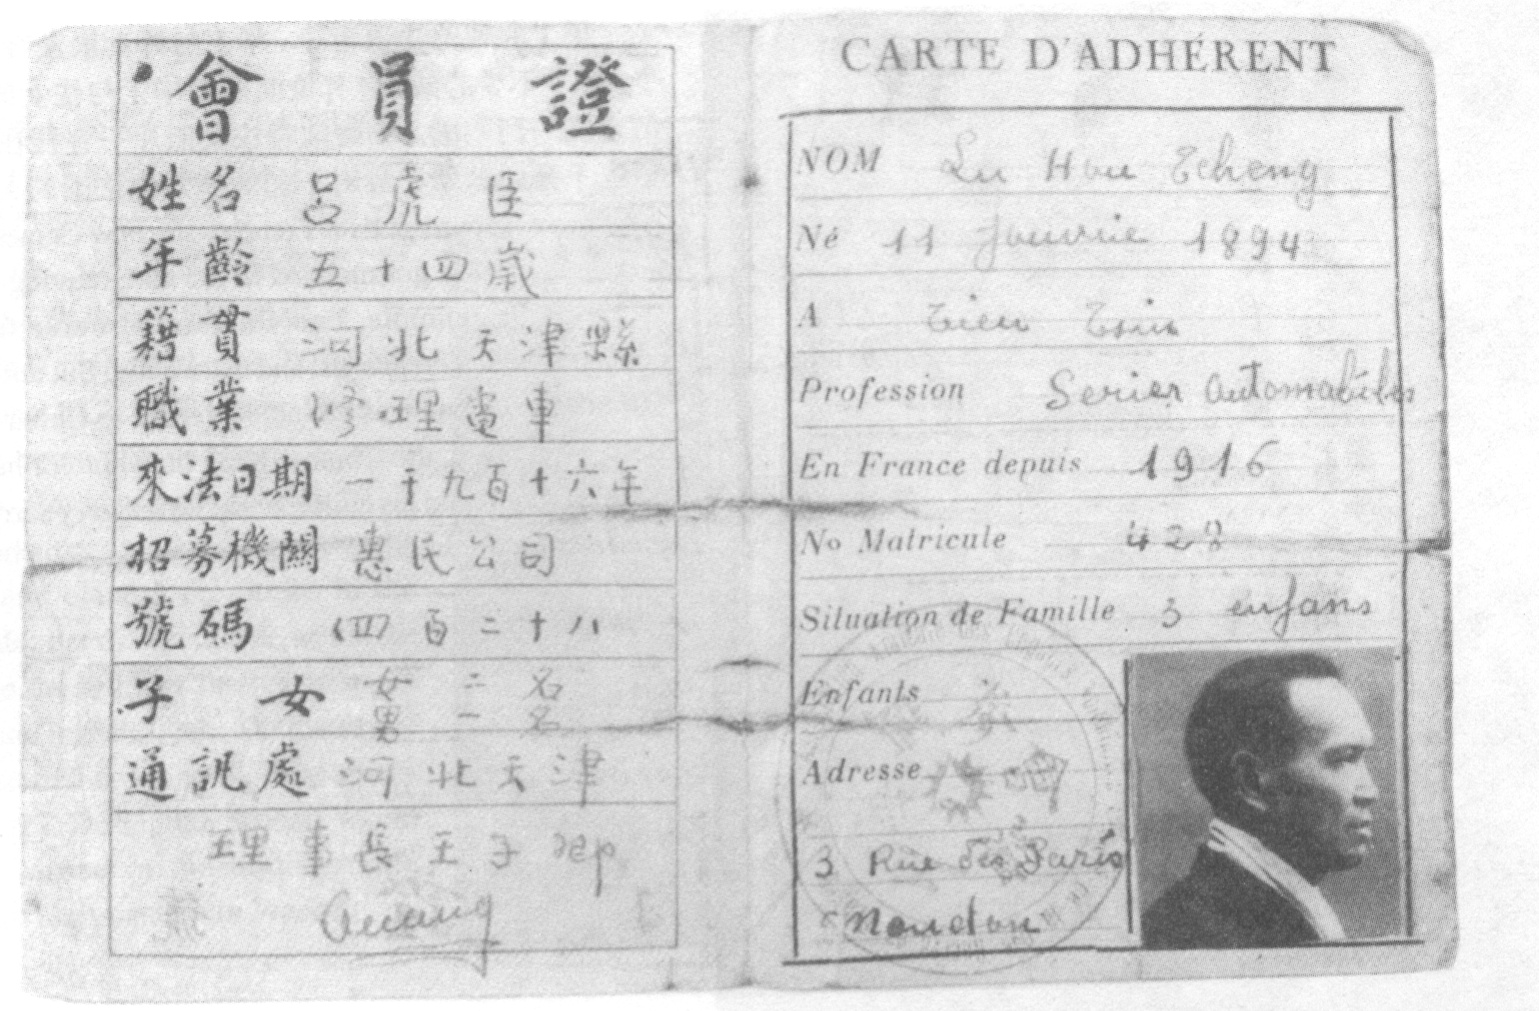 會員證
姓名 呂虎臣
年齡 五十四歲
籍貫 河北天津縣
職業 修理電車
來法日期 一千九百十六年
招募機關 惠民公司
號碼 四百二十八
子女 女二名
男一名
通訊處 河北天津
理事長王子卿
CARTE D'ADHÉRENT
NOM Lu Hou Tcheng
Né 11 Janvrie 1894
A Tien Tsin
Profession Serier Automabiles
En France depuis 1916
No Matricule 428
Situation de Famille 3 enfans
Enfants
Adresse
3 Rue des Paris
Moudon